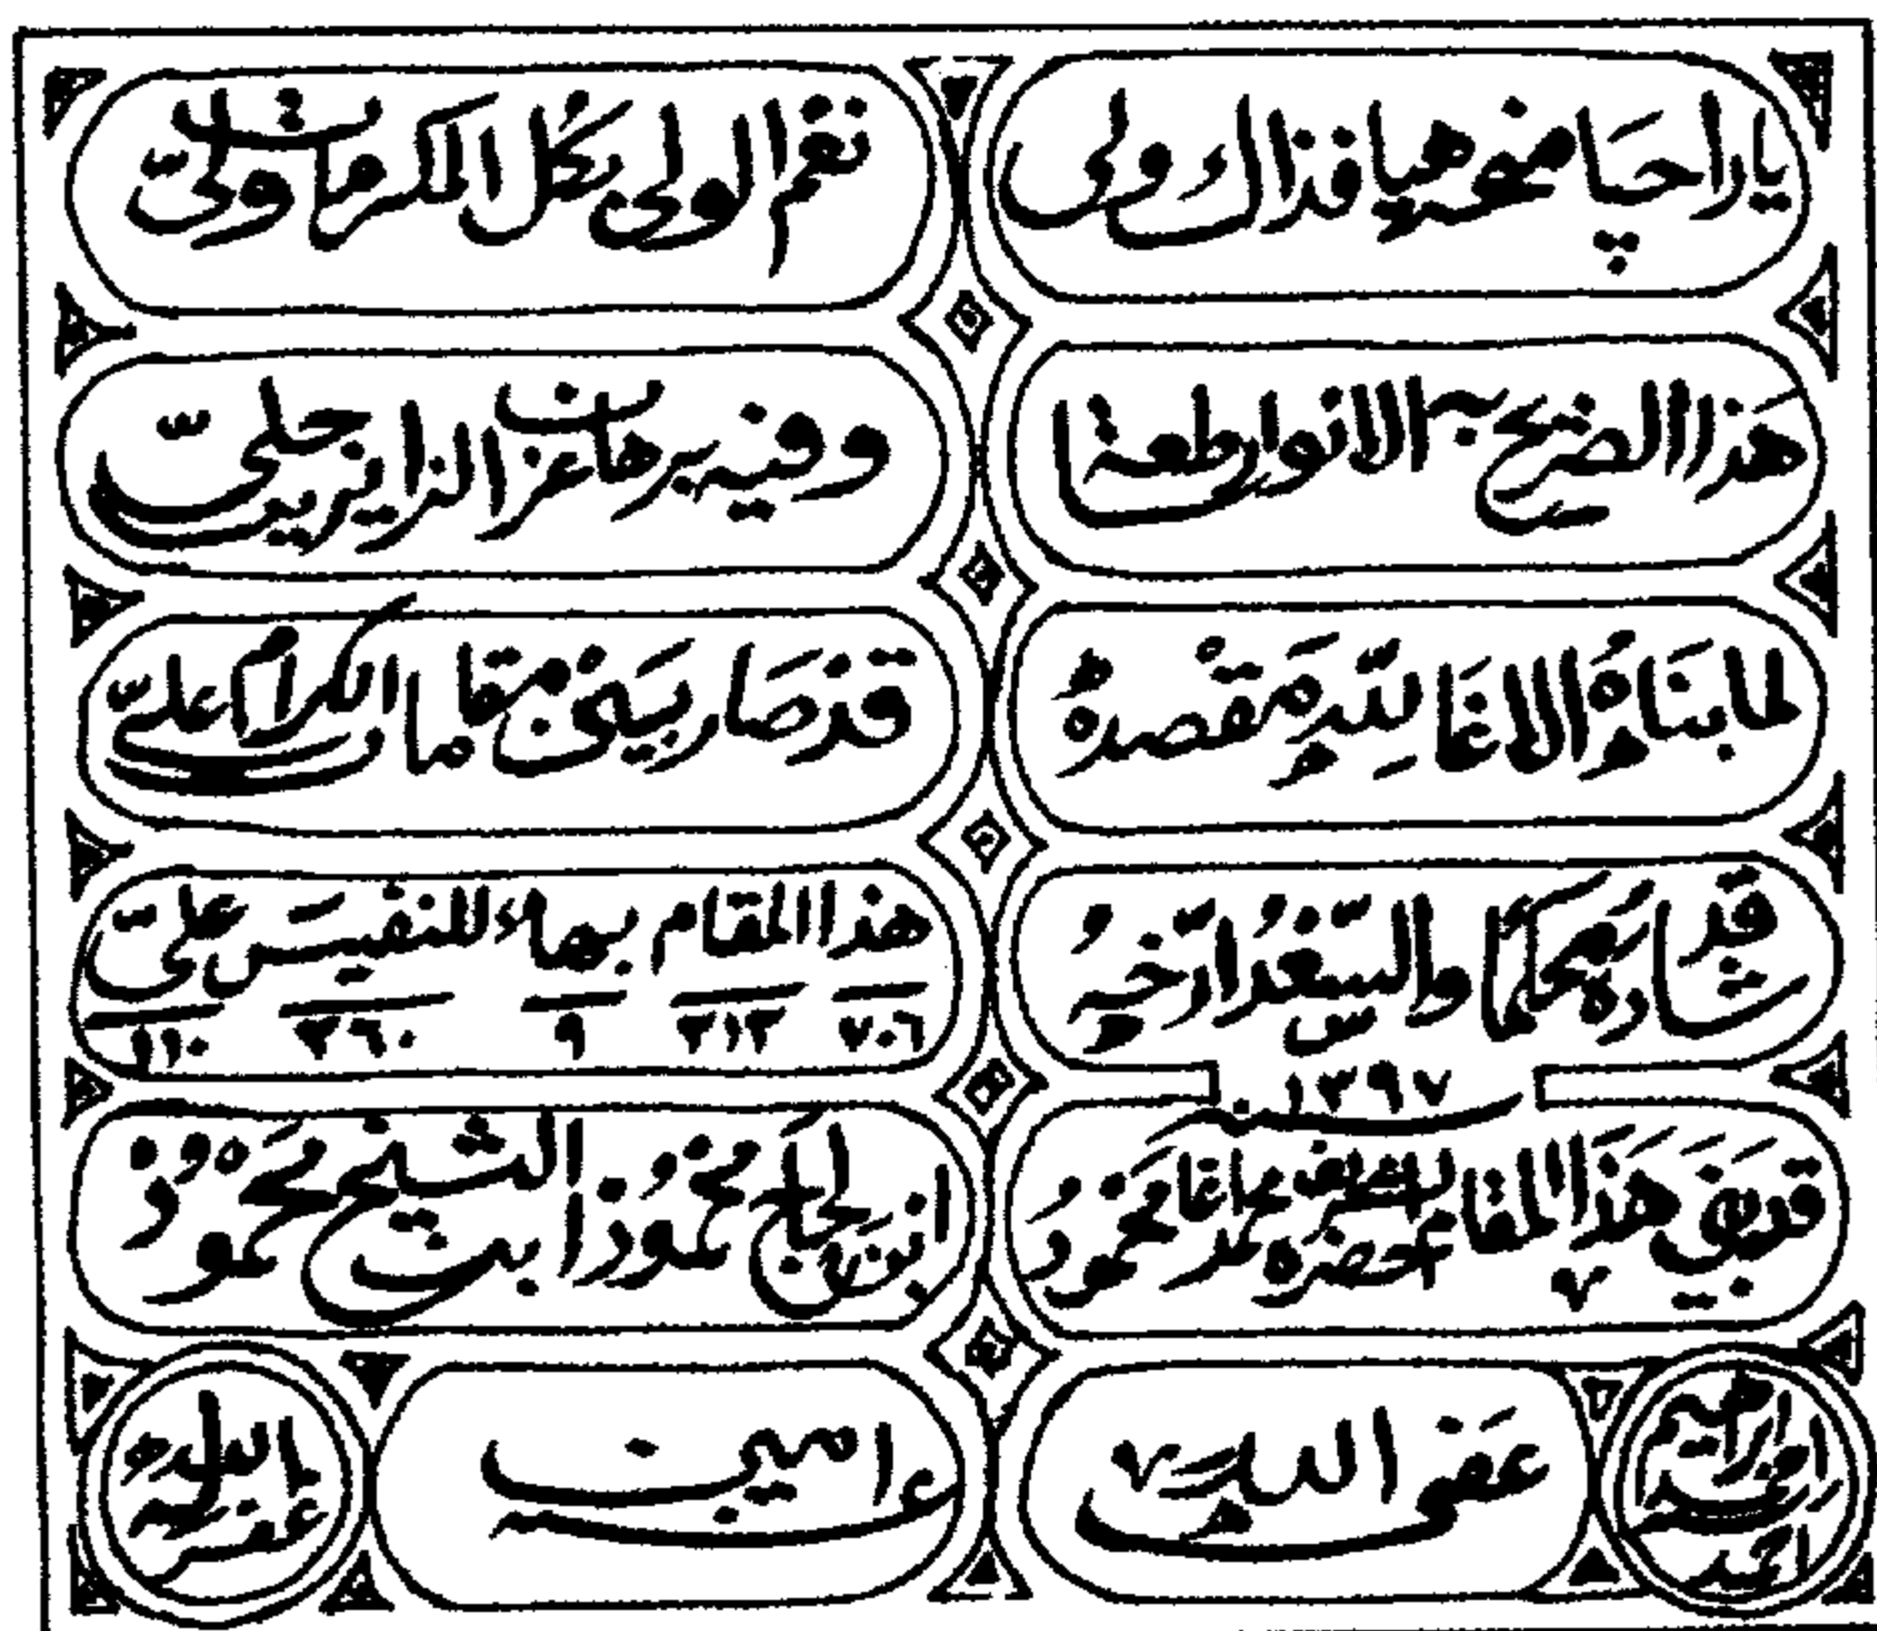 يا راجيا نحو هيا فذاك ولي
نعم الولي بكل المكرمات ولي
هذا الضريح به الانوار طعة
وفيه برهان عز الزايرين جلي
لما بناه الاغا لله مقصده
قد صار بين مقامات الكرام علي
قد شاده محكما والسعد ارخه
هذا المقام بهاء للنفيس علي
٧٠٦ ٢١٢ ٩ ٢٦٠ ١١٠
سنه ١٣٩٧
قد بنى هذا المقام الشريف حضره محمد اغا محمود
ابن الحاج محمود ابن الشيخ محمود
عفى الله
ءامين
ابراهيم
احمد
الله
غفر